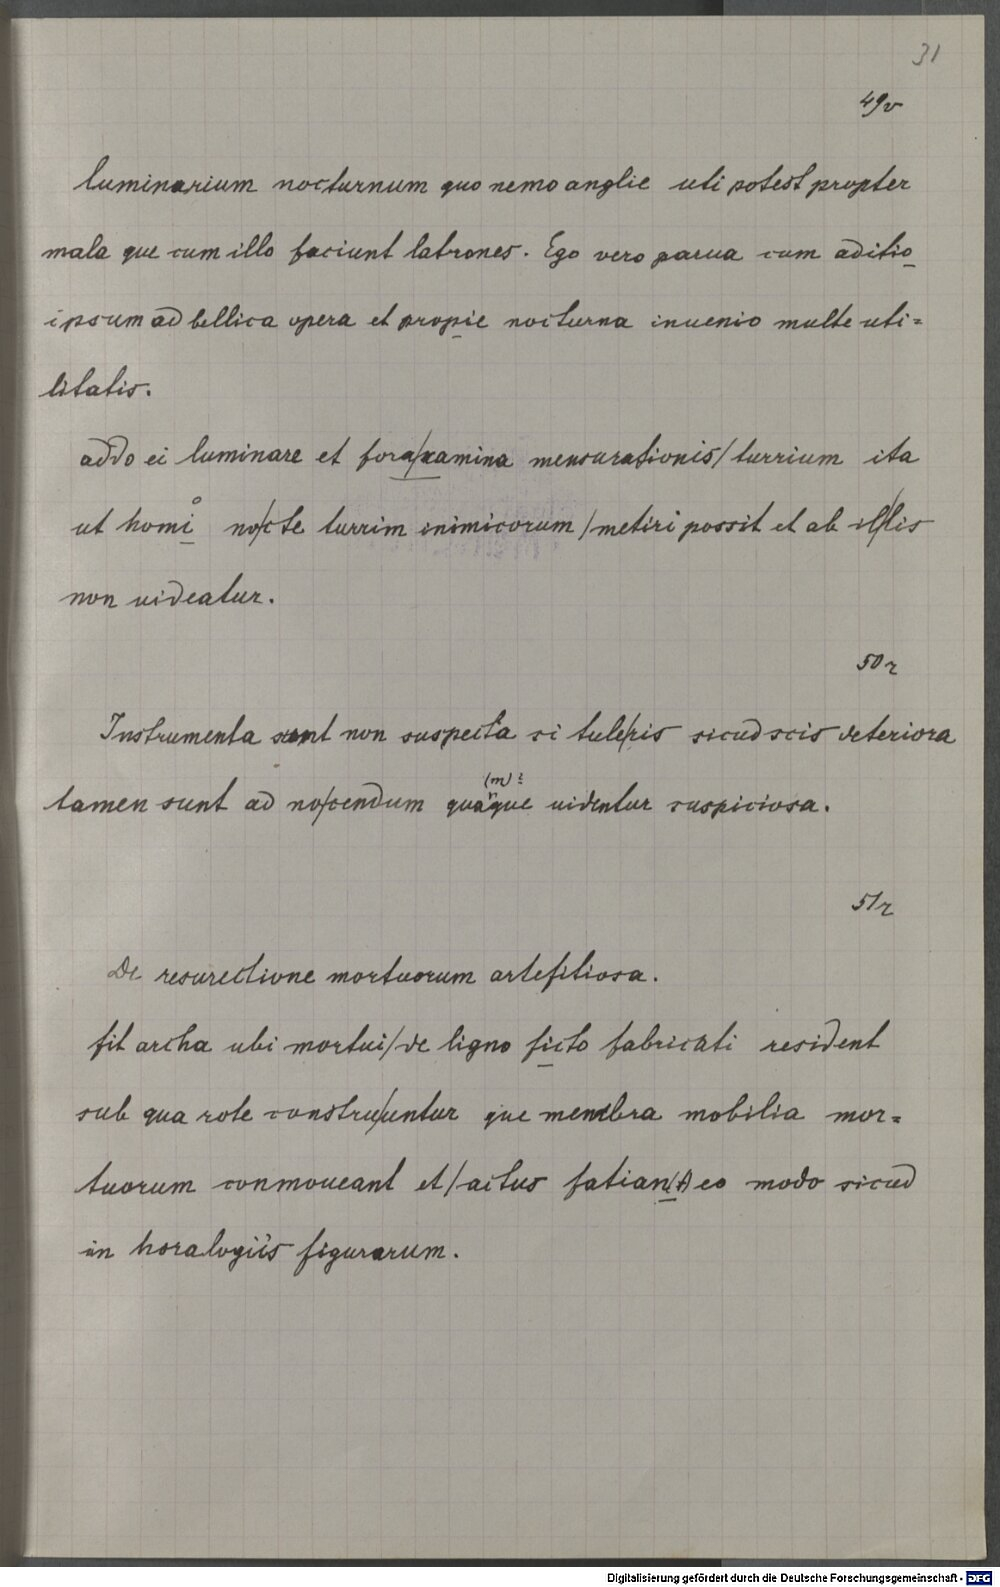 31
49v
luminarium nocturnum quo nemo anglie uti potest propter
mala que cum illo faciunt latrones. Ego vero parua cum aditio
ipsum ad bellica opera et propie nocturna inuenio multe uti=
litatis.
addo ei luminare et fora/xamina mensurationis/turrium ita
ut homi° no/cte turrim inimicorum/metiri possit et ab il/lis
non uideatur.
50r
Instrumenta sunt non suspecta si tule/ris sicud scis deteriora
(m)?
tamen sunt ad no/cendum quaque uidentur suspiciosa.
51r
De resurectione mortuorum artefitiosa.
fit archa ubi mortui/de ligno ficto fabricati resident
sub qua rote constru/untur que membra mobilia mor=
tuorum conmoueant et/actus fatian(t) eo modo sicud
in horalogiis figurarum.
Digitalisierung gefördert durch die Deutsche Forschungsgemeinschaft - DFG